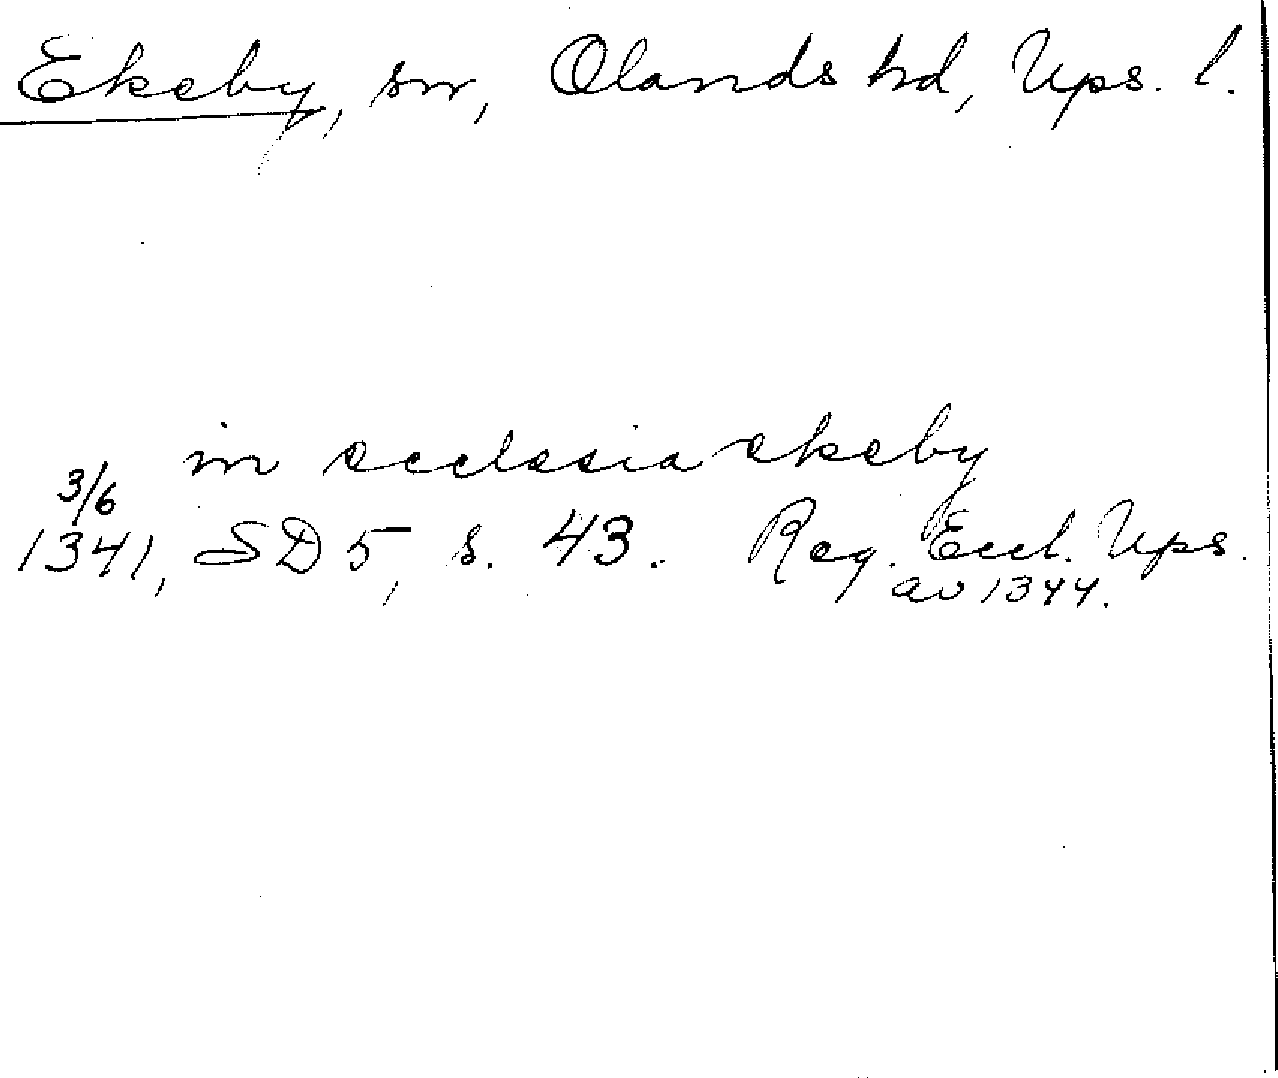 Ekeby, sn, Olands hd, Ups. l.
in ecclesia ekeby
3/6
1341, SD 5, s. 43. Reg. Eccl. Ups.
av 1344.